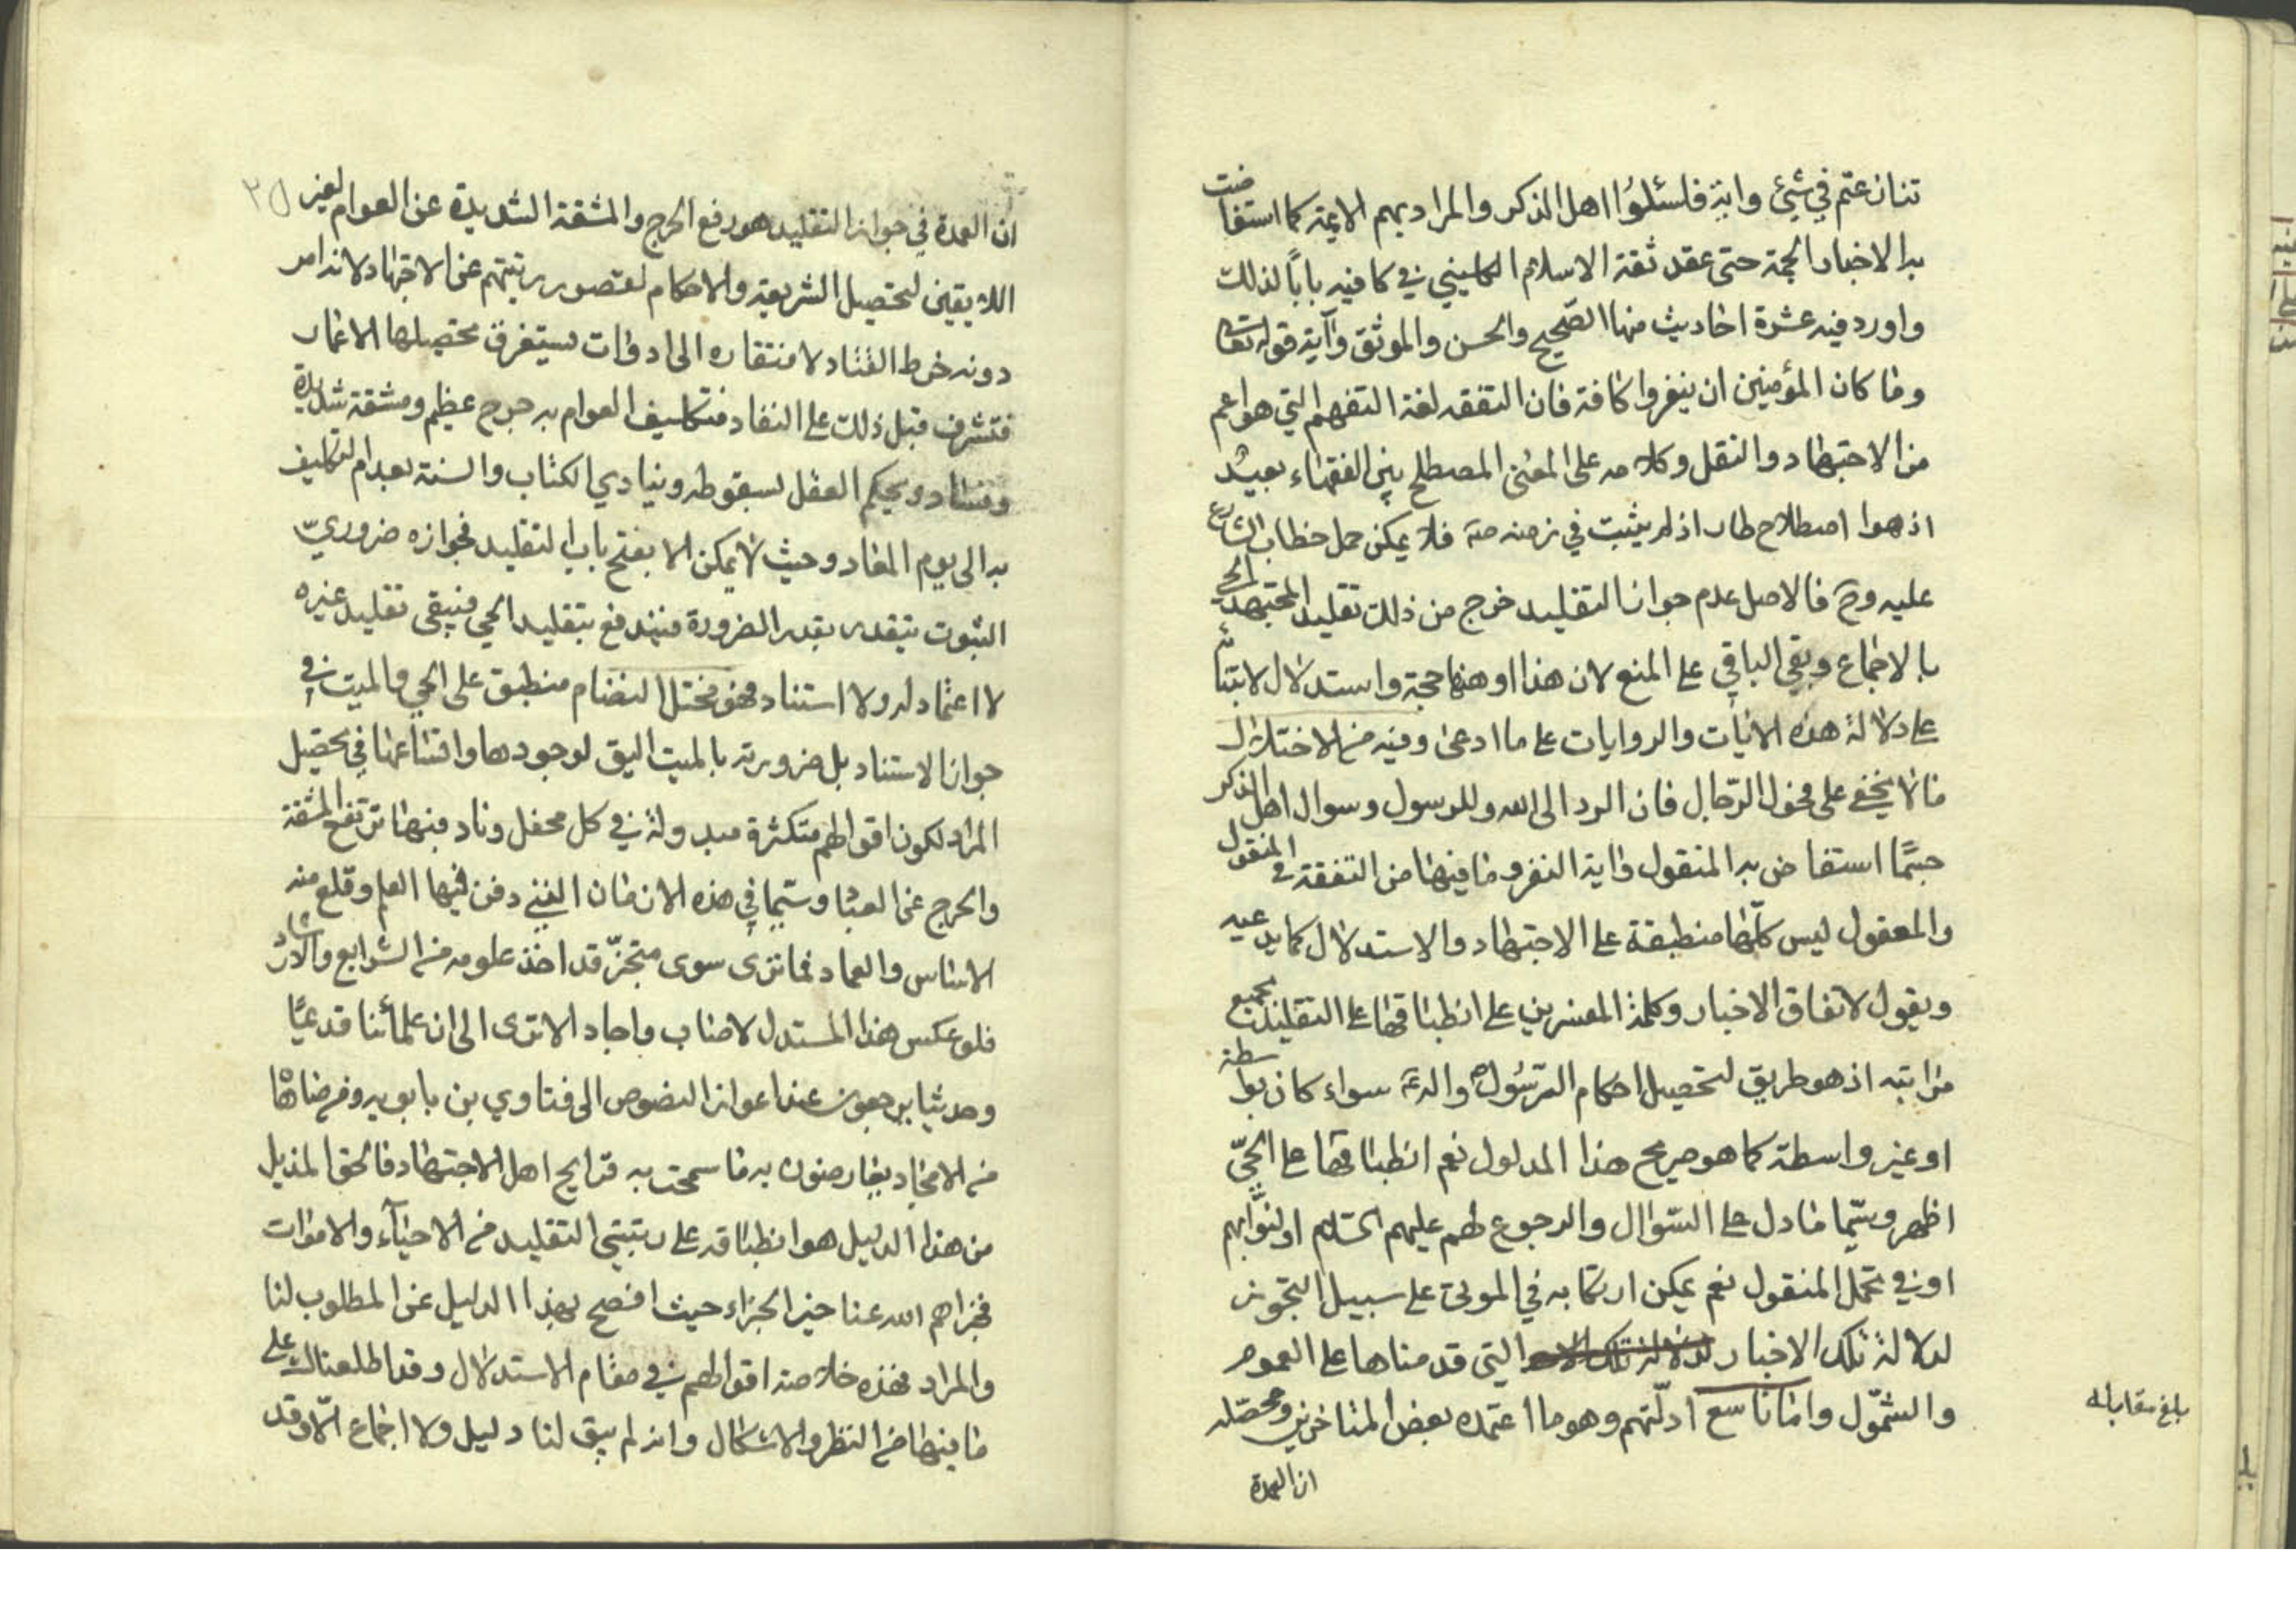 تنازعتم في شيئ واية فاسئلوا اهل الذكر والمراد بهم الائمة كما استفاضت
به الاخبار الجمة حتى عقد ثقة الاسلام الكليني في كافيه باباً لذلك
واورد فيه عشرة احاديث منها الصّحيح والحسن والموثق وآية قوله تعالى
وما كان المؤمنين ان ينفروا كافة فان التفقه لغة التفهم التي هو اعم
من الاجتهاد والنقل وكلامه على المعنى المصطلح بين الفقهاء بعيد
اذ هوا اصطلاح طار اذ لم يثبت في زمنه صَ فلا يمكن حمل خطاب الشارع
عليه وحَ فالاصل عدم جواز التقليد خرج من ذلك تقليد المجتهد الحي
بالاجماع وبقي الباقي على المنع لان هذا اوهنها حجة واستدلال لابتنائه
على دلالة هذه الايات والروايات على ما ادعى وفيه من الاختلال
ما لا يخفى على فحول الرّجال فان الرد الى الله وللرسول وسوال اهل الذكر
حسبما استفاض به المنقول واية النفر وما فيها من التفقة في المنقول
والمعقول ليس كلّها منطبقة على الاجتهاد والاستدلال كما يدعيه
ويقول لاتفاق الاخبار وكلمة المفسرين على انطباقها على التقليد بجميع
مراتبه اذ هو طريق لتحصيل احكام الرّسُول ص والهَ سواء كان بواسطة
او غير واسطة كما هو صريح هذا المدلول نعم انطباقها على الحيّ
اظهر وسيّما ما دل على السّؤال والرجوع لهم عليهم السّلام او لنوّابهم
او في تحمل المنقول نعم يمكن ارتكابه في الموتى على سبيل التجوز
لدلالة تلك الاخبار التي قدمناها على العموم
والشّمول واما تاسع ادلّتهم وهو ما اعتمده بعض المتاخرين ومحصّله
بلغ مقابله
ان العمدة
٢٥
ان العمدة في جواز التقليد هو رفع الحرج والمشقة الشديدة عن العوام الغير
اللايقين لتحصيل الشريعة والاحكام لقصور رتبتهم عن الاجتهاد لانه امر
دونه خرط القتاد لافتقاره الى ادوات يستغرق تحصيلها الاعمار
فتشرف قبل ذلك على النفاد فتكليف العوام به حرج عظيم ومشقة شديدة
وفساد ويحكم العقل بسقوطه وينادي الكتاب والسنة بعدام التكليف
به الى يوم المعاد وحيث لا يمكن الا بفتح باب التقليد فجوازه ضروريّ
الثبوت يتقدر بقدر الضرورة فيندفع بتقليد الحي فيبقى تقليد غيره
لا اعتماد له ولا استناد فهو مختل النضام منطبق على الحي والميت في
جواز الاستناد بل ضرورته بالميت اليق لوجودها واقناعها في تحصيل
المراد لكون اقوالهم متكثرة مبدولة في كل محفل وناد فبها ترتفع المشقة
والحرج عن العباد وسيّما في هذه الازمان الذي دفن فيها العلم وقلع منه
الاساس والعماد فما ترى سوى متجزّ قد اخذ علومه من الشرايع والارشاد
فلو عكس هذا المستدل لاصاب واجاد الا ترى الى ان علمائنا قديمًا
وحديثا يرجعون عند اعواز النصوص الى فتاوي بن بابويه وفرضاها
من الاخبار يعارضون به ما سمحت به قرايح اهل الاجتهاد فالحق المذيل
من هذا الدليل هو انطباقه على رتبتي التقليد من الاحيآء والاموات
فجزاهم الله عنا خير الجزاء حيث افصح بهذا الدليل عن المطلوب لنا
والمراد فهذه خلاصة اقوالهم في مقام الاستدلال وقد اطلعناك على
ما فيها من النظر والاشكال وانه لم يبق لنا دليل ولا اجماع الّا وقد